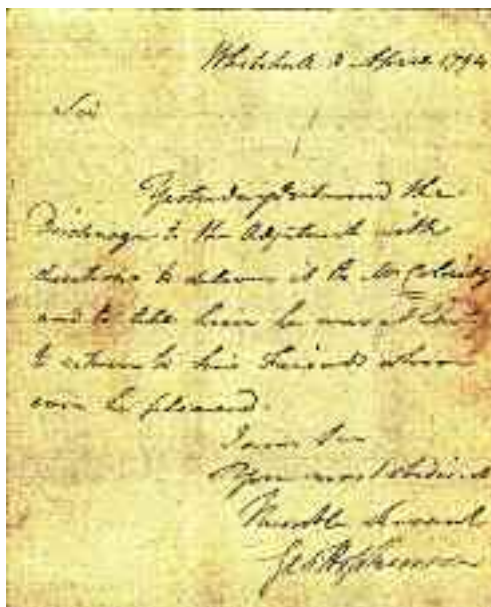 Whitehall 8 April 1794
Sir
Yesterday I returned the
Discharge to the Adjutant with
directions to deliver it to Mr
and to tell him he was at liberty
to return to his Friends
ever he pleased.
I am Sir
Your most Obedient
Humble Servant
Geo